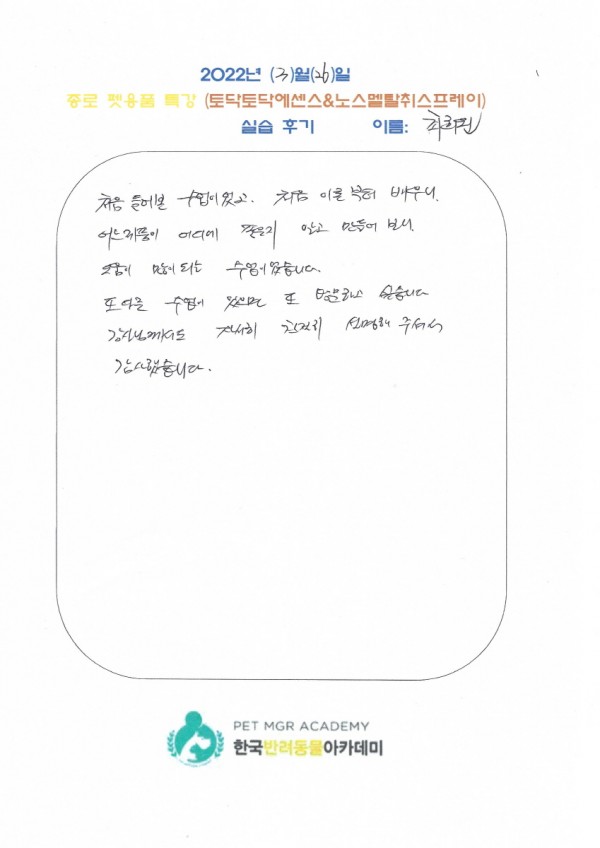 2022년 (3)월(26)일
종로 펫용품 특강 (토닥토닥에센스&노스멜탈취스프레이)
실습 후기 이름: 최희원
처음 들어본 수업이었고. 처음 이론부터 배우니.
어느제품이 어디에 좋은지 알고 만들어 보니.
도움이 많이 되는 수업이었습니다.
또 다른 수업이 있다면 또 싶습니다
강사님께서도 자세히 친절히 설명해 주셔서
감사했습니다.
PET MGR ACADEMY
한국반려동물아카데미